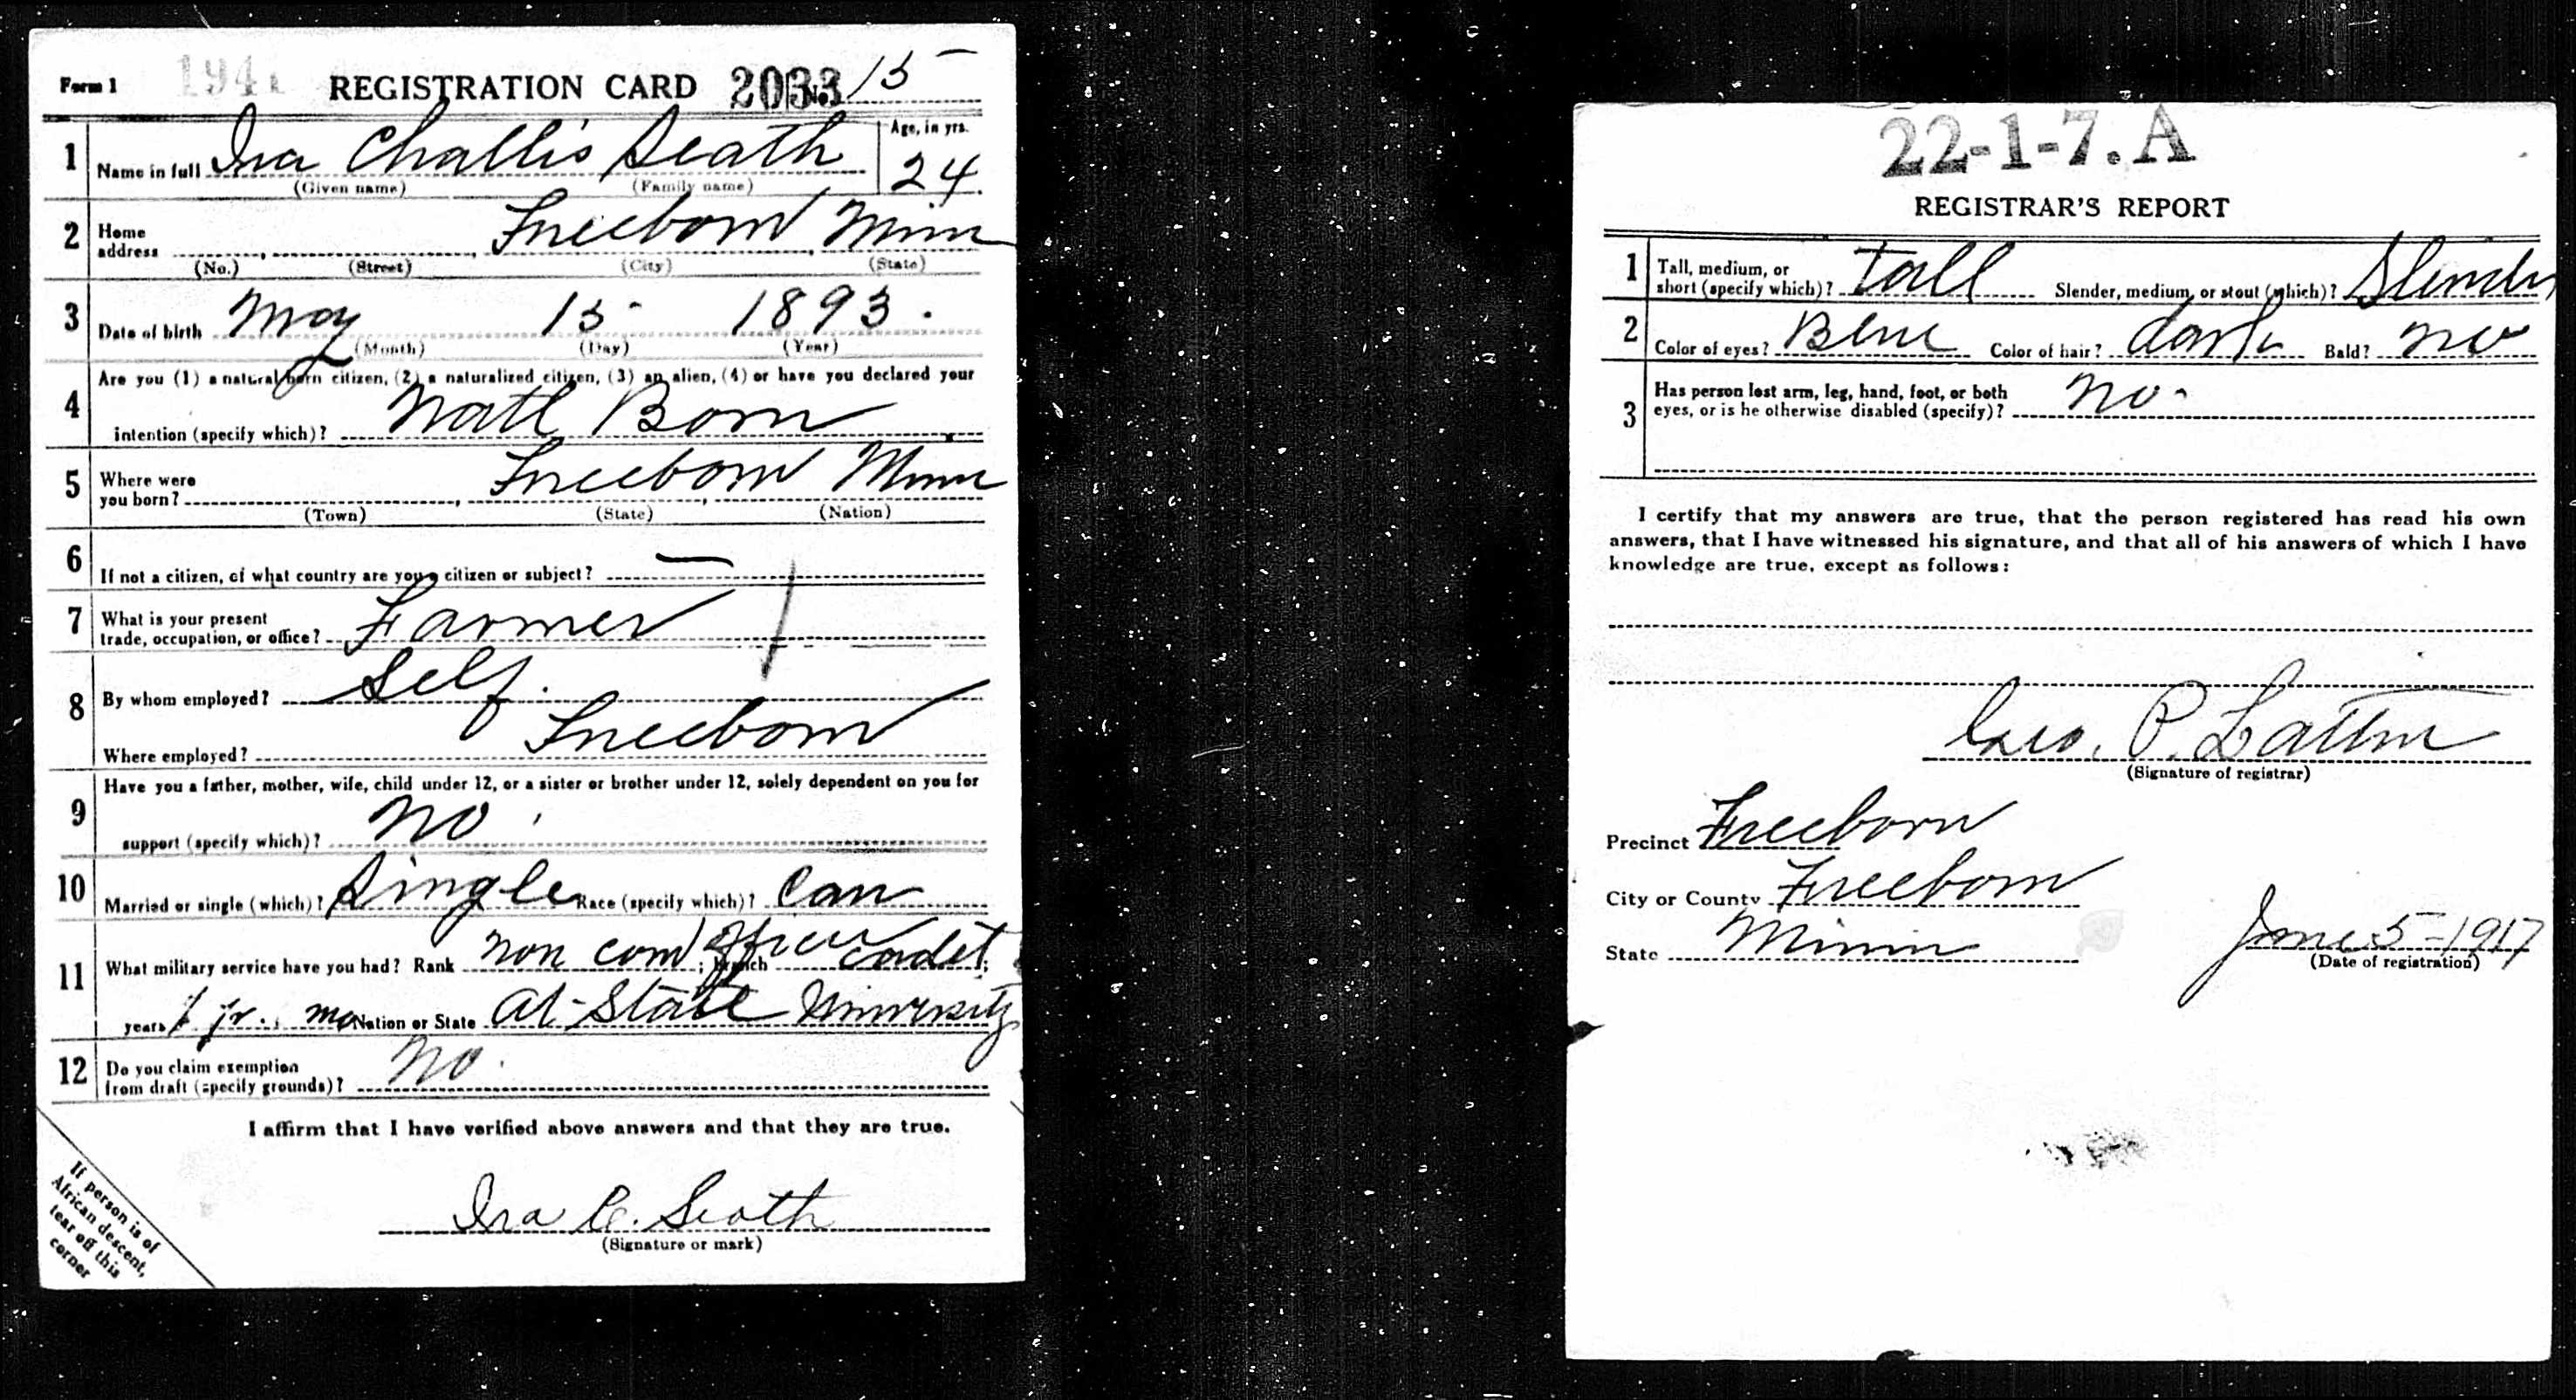 Form 1 194 REGISTRATION CARD 2033 No. 15
1 Name in full Ira Challis Seath Age, in yrs. 24
(Given name) (Family name)
2 Home address Freeborn Minn
(No.) (Street) (City) (State)
3 Date of birth May 15 1893.
(Month) (Day) (Year)
4 Are you (1) a natural born citizen, (2) a naturalized citizen, (3) an alien, (4) or have you declared your
intention (specify which)? Natl Born
5 Where were you born? Freeborn Minn
(Town) (State) (Nation)
6 If not a citizen, of what country are you a citizen or subject? —
7 What is your present trade, occupation, or office? Farmer
8 By whom employed? Self.
Where employed? Freeborn
9 Have you a father, mother, wife, child under 12, or a sister or brother under 12, solely dependent on you for
support (specify which)? no
10 Married or single (which)? Single Race (specify which)? Cau
11 What military service have you had? Rank non com officer; branch cadet;
years 1 yr. mo Nation or State at State University
12 Do you claim exemption from draft (specify grounds)? No.
I affirm that I have verified above answers and that they are true.
Ira C. Seath
(Signature or mark)
If person is of
African descent,
tear off this
corner
22-1-7. A
REGISTRAR'S REPORT
1 Tall, medium, or short (specify which)? tall Slender, medium, or stout (which)? Slender
2 Color of eyes? Blue Color of hair? dark Bald? no
3 Has person lost arm, leg, hand, foot, or both
eyes, or is he otherwise disabled (specify)? no-
I certify that my answers are true, that the person registered has read his own
answers, that I have witnessed his signature, and that all of his answers of which I have
knowledge are true, except as follows:
Geo. P. Lattin
(Signature of registrar)
Precinct Freeborn
City or County Freeborn
State Minn June 5-1917
(Date of registration)